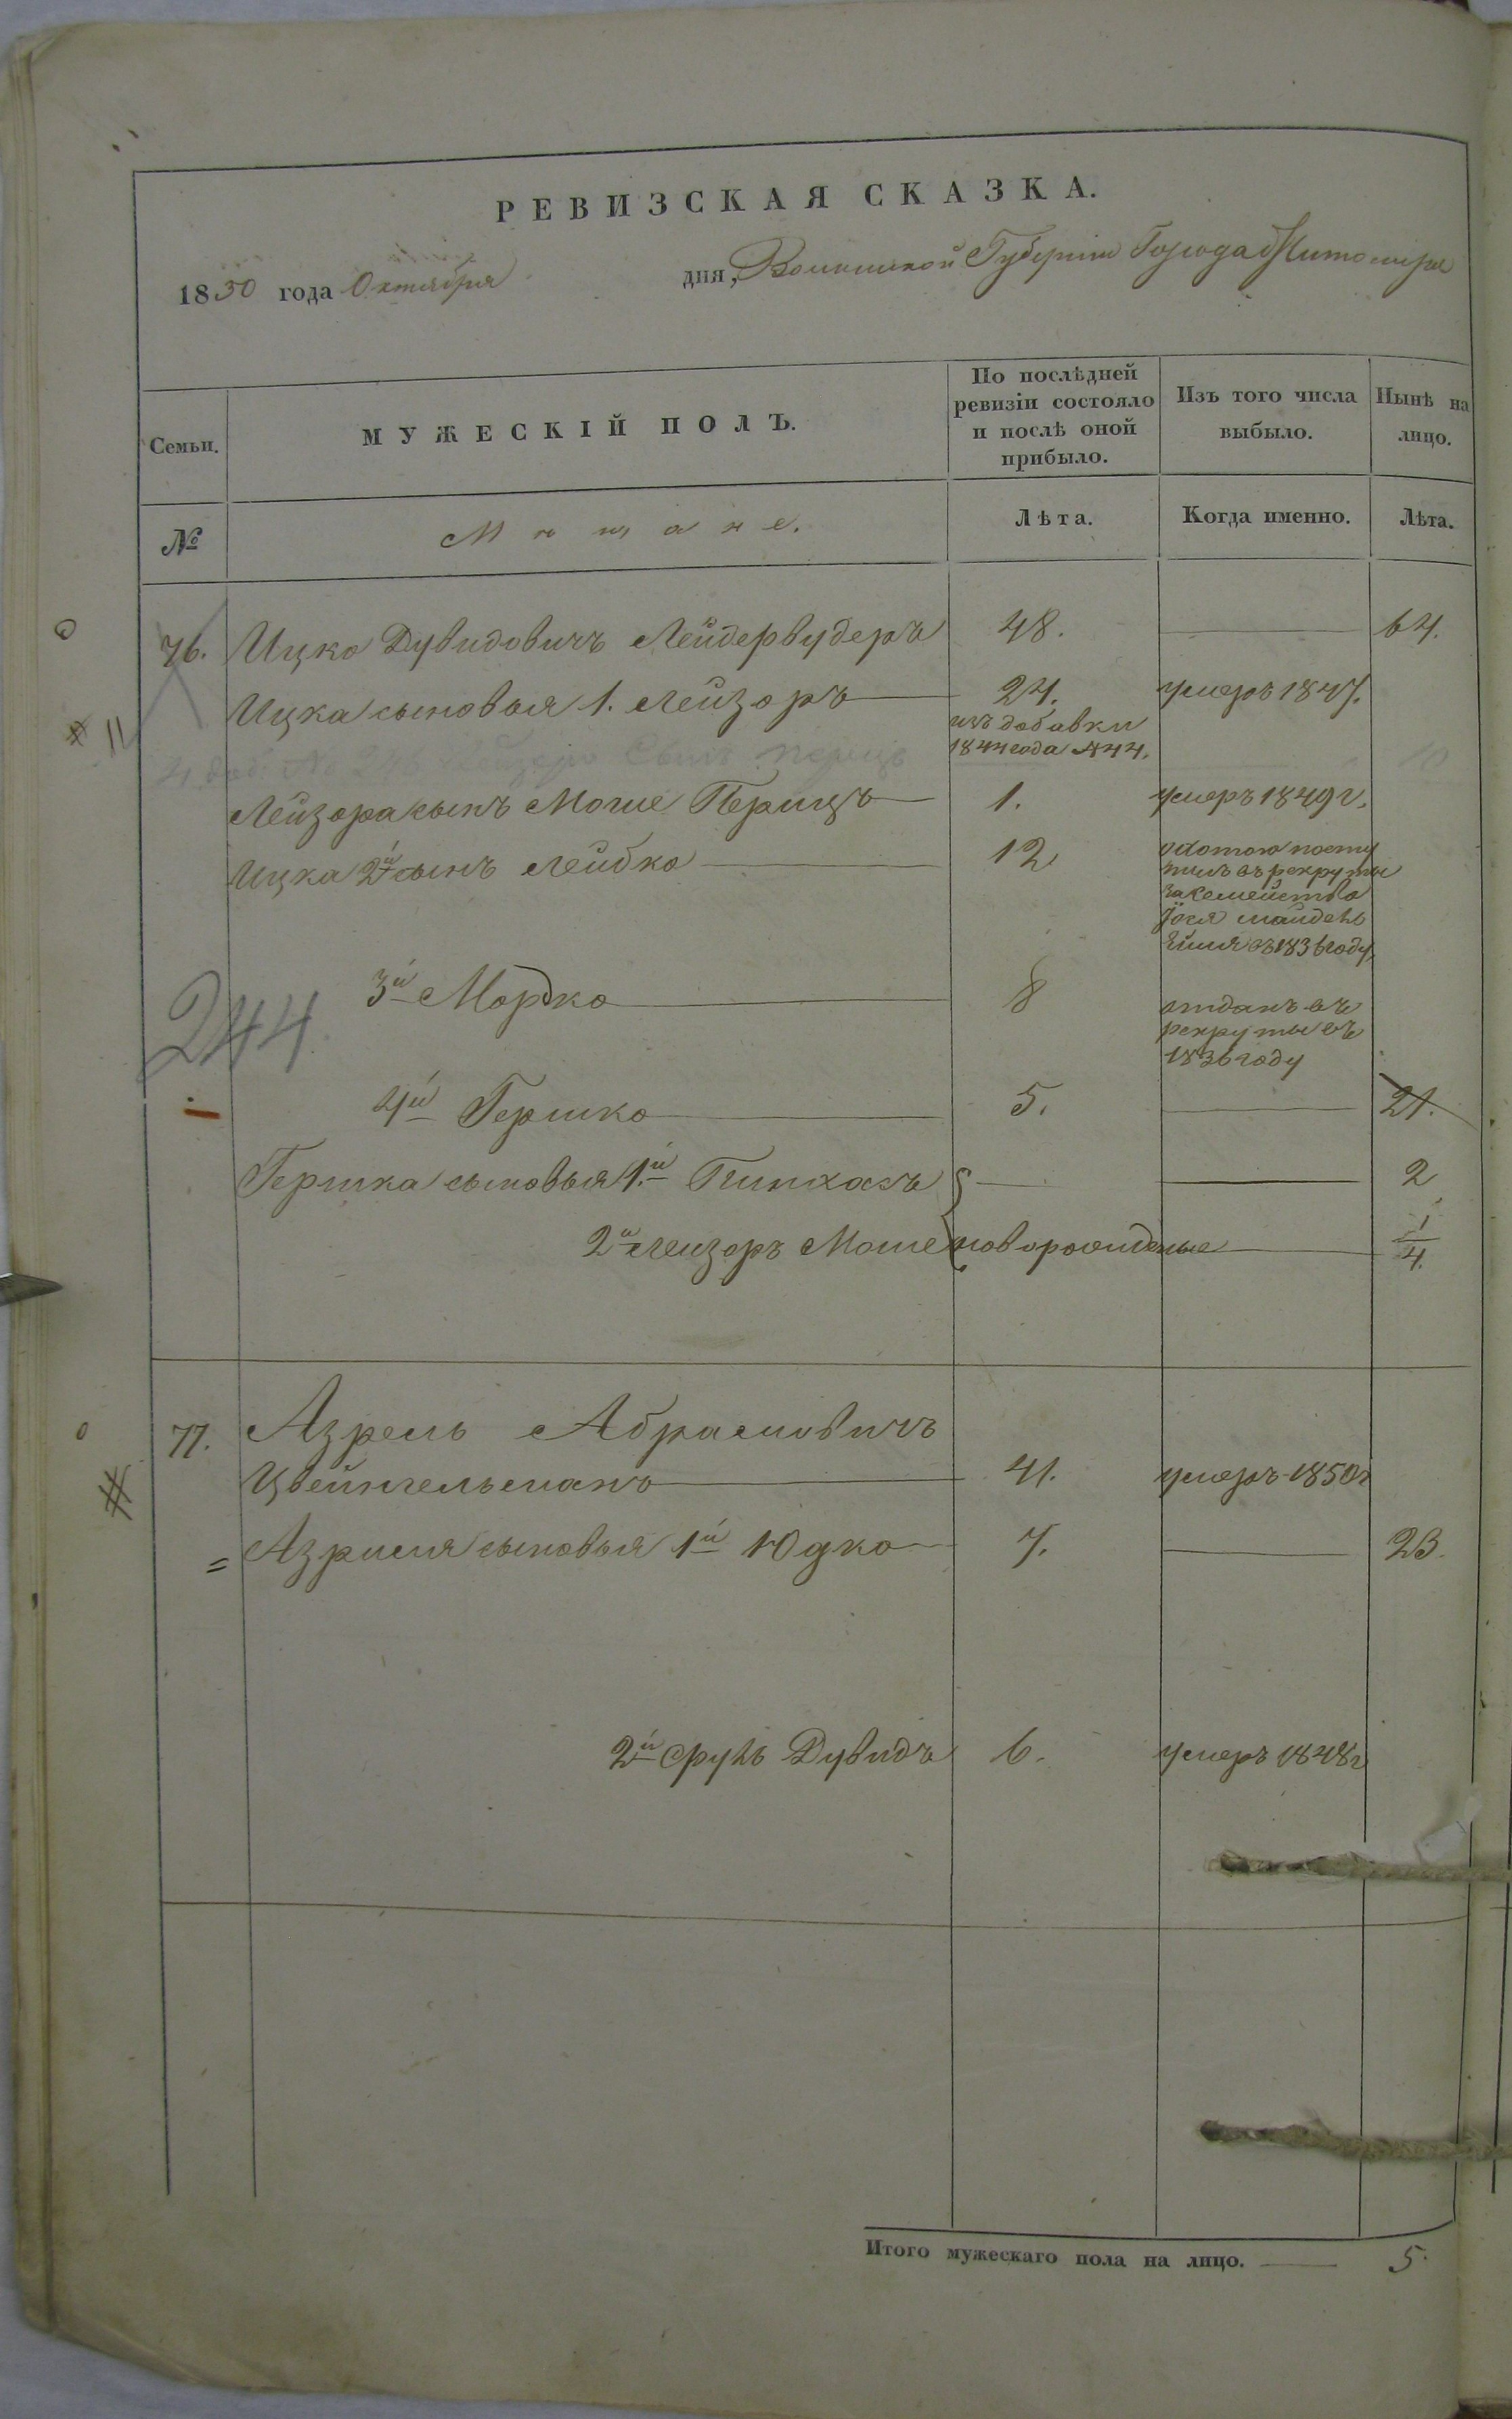 РЕВИЗСКАЯ СКАЗКА.
1850 года Октября дня, Волынской Губерніи Города Житомира
Семьи.
МУЖЕСКІЙ ПОЛЪ.
По послѣдней ревизіи состояло и послѣ оной прибыло.
Изъ того числа выбыло.
Нынѣ на лицо.
№
Мѣщане.
Лѣта.
Когда именно.
Лѣта.
76. Ицко Дувидовичъ Лейдервудеръ 48. 64.
Ицка сыновья 1. Лейзоръ 24. умеръ 1847.
изъ добавки
1844 года 444.
Лейзора сынъ Моше Перицъ 1. умеръ 1849 г.
Ицка 2й сынъ Лейбко 12
охотою посту
пилъ въ рекруты
за семейство
въ 1836 году,
3й Мордко 8 отданъ въ
рекруты въ
1836 году
244
4й Гершко 5. 21.
Гершка сыновья 1й Пинхасъ 2
2й Лейзоръ Моше новорожденые 1/4
77. Азрель Абрамовичъ
Цвейгельманъ 41. умеръ 1850 г
Азриля сыновья 1й Юдко 7. 23.
2й Сруль Дувидъ 6. умеръ 1848 г
Итого мужескаго пола на лицо. 5.